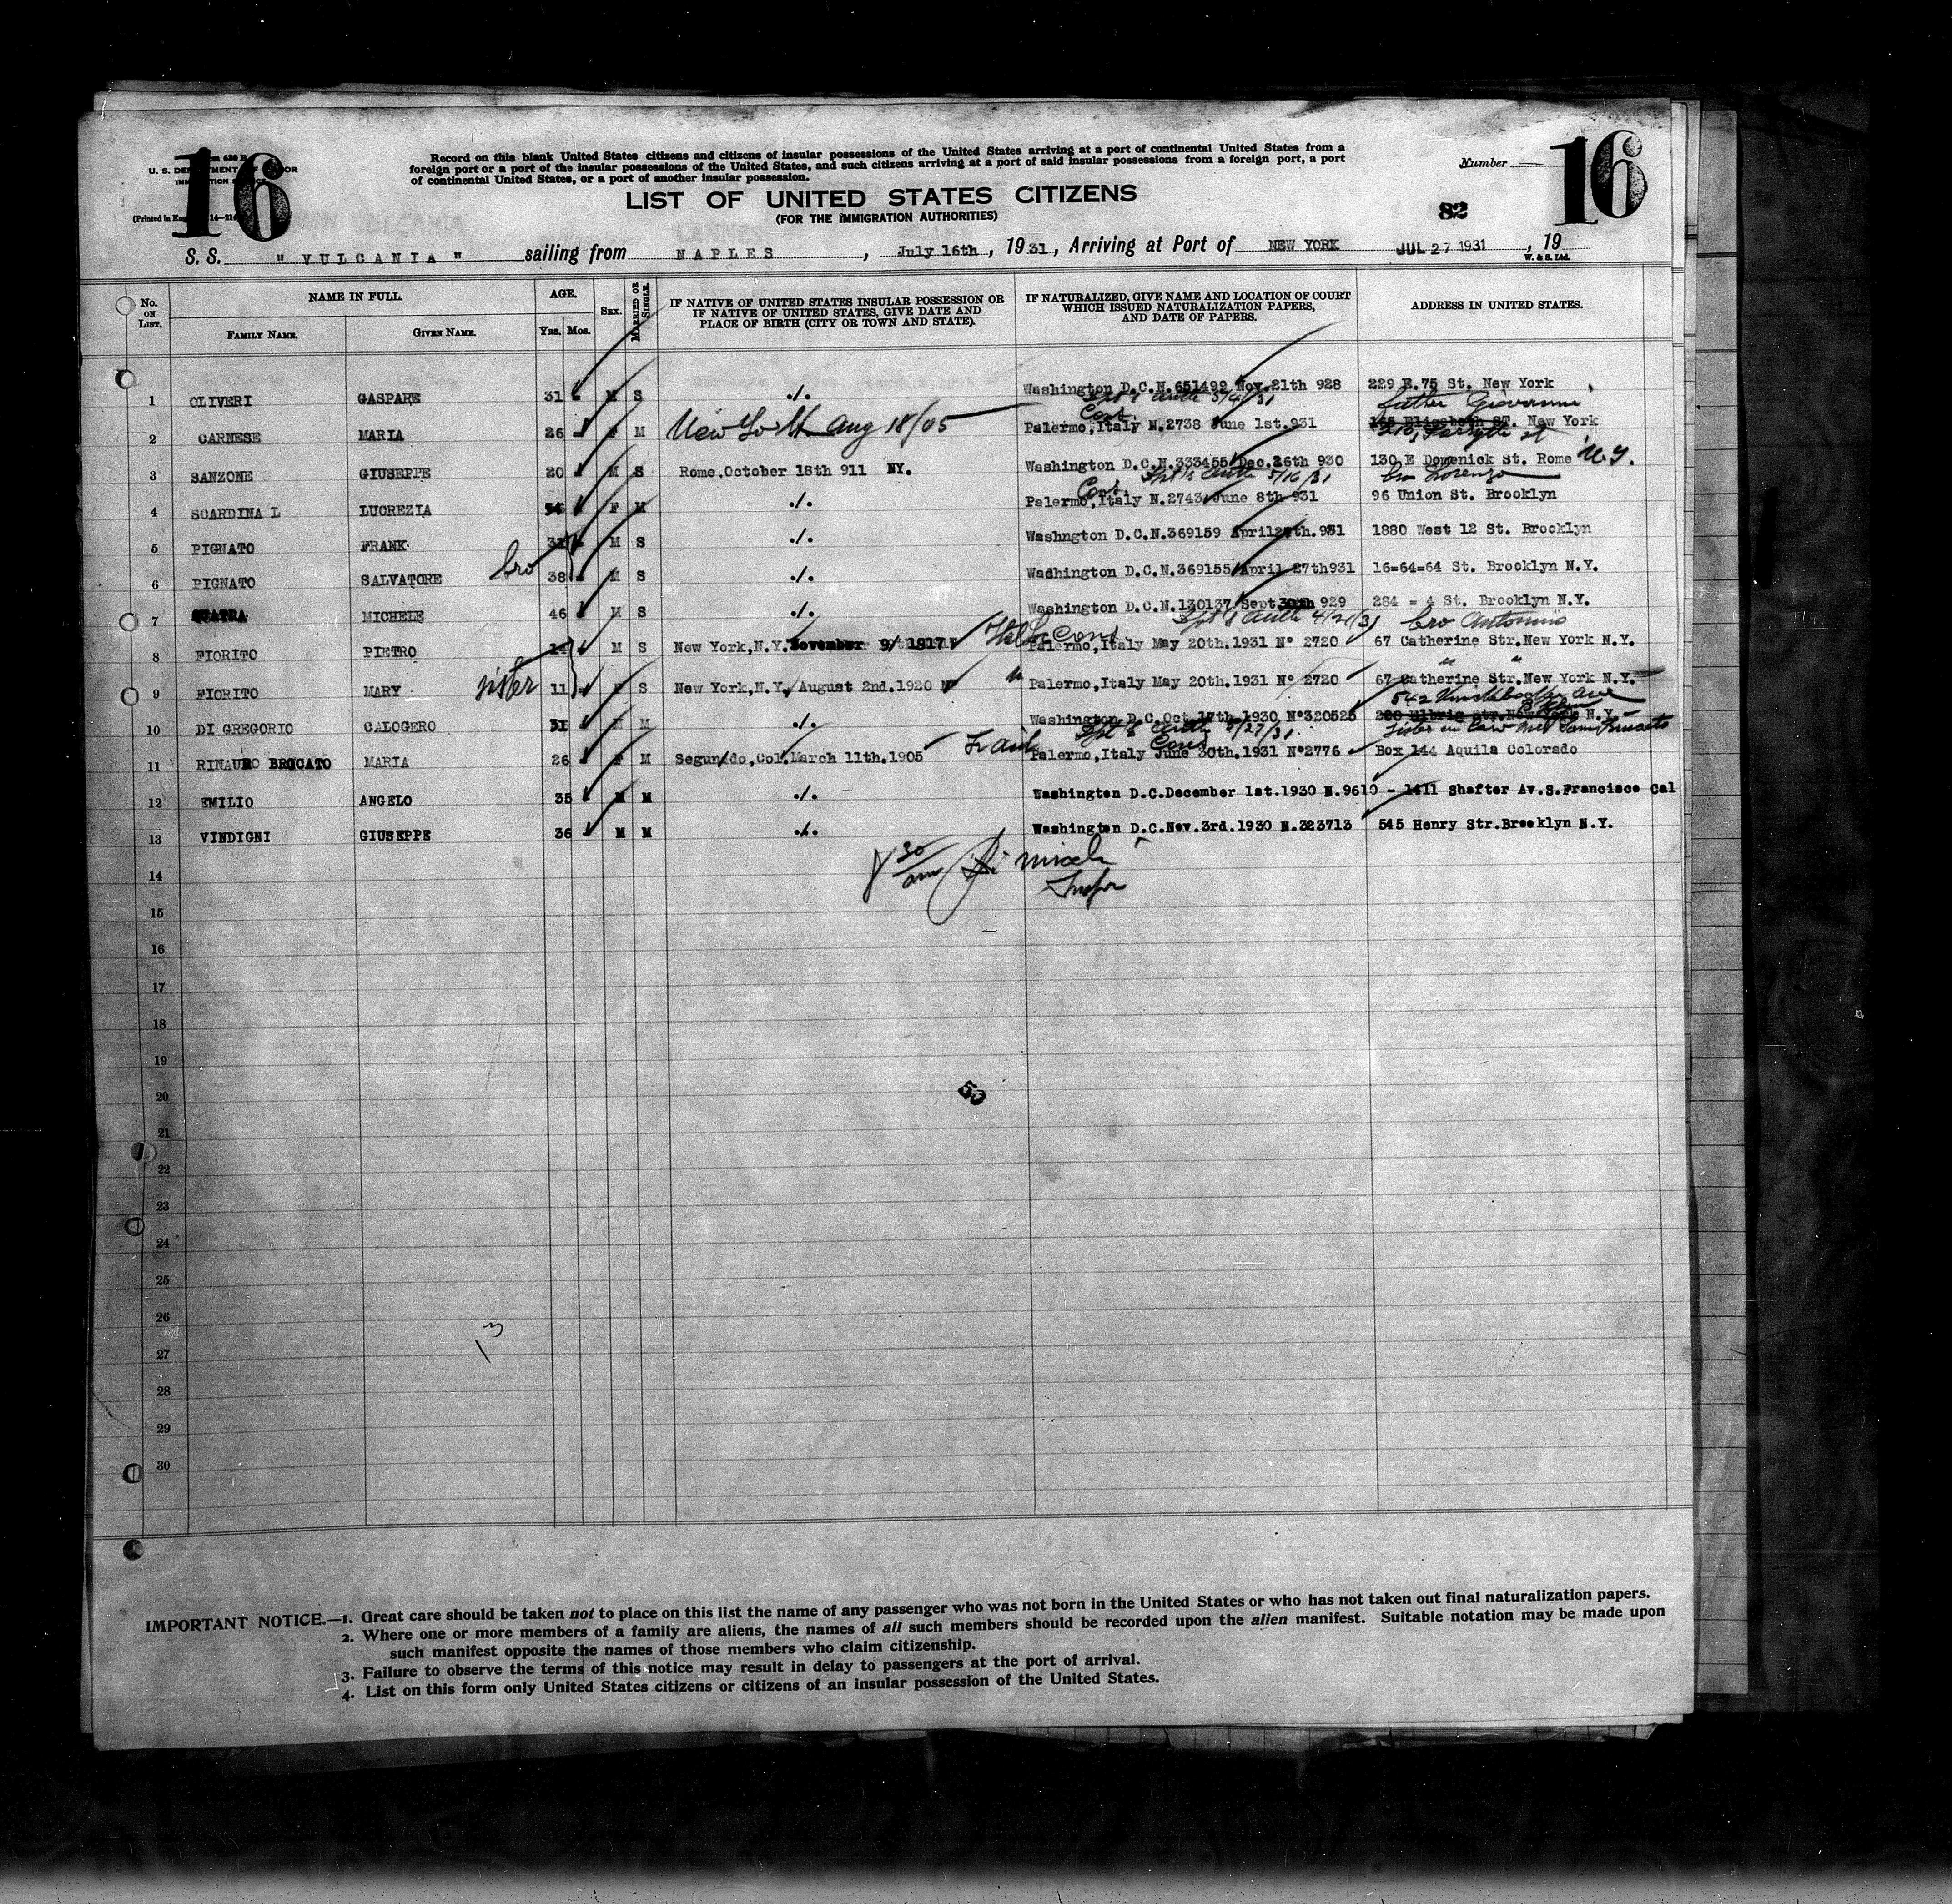 16
16
U. S. DEPARTMENT OF LABOR
IMMIGRATION
Record on this blank United States citizens and citizens of insular possessions of the United States arriving at a port of continental United States from a
foreign port or a port of the insular possessions of the United States, and such citizens arriving at a port of said insular possessions from a foreign port, a port
of continental United States, or a port of another insular possession.
Number
LIST OF UNITED STATES CITIZENS
(FOR THE IMMIGRATION AUTHORITIES)
82
S. S. " VULCANIA " sailing from NAPLES , July 16th , 1931, Arriving at Port of NEW YORK JUL 27 1931 , 19
W. & S. Ltd.
No. ON LIST. NAME IN FULL. AGE. SEX. MARRIED OR SINGLE. IF NATIVE OF UNITED STATES INSULAR POSSESSION OR IF NATIVE OF UNITED STATES, GIVE DATE AND PLACE OF BIRTH (CITY OR TOWN AND STATE). IF NATURALIZED, GIVE NAME AND LOCATION OF COURT WHICH ISSUED NATURALIZATION PAPERS, AND DATE OF PAPERS. ADDRESS IN UNITED STATES.
FAMILY NAME. GIVEN NAME. YRS. MOS.
1 OLIVERI GASPARE 31 M S ./. Washington D.C.N.651499 Nov.21th 928 229 E.75 St. New York
father Giovanni
2 CARNESE MARIA 26 F M New York Aug 18/05 Cons. Palermo,Italy N.2738 June 1st.931 165 Elizabeth ST. New York
210, Forsyth st
3 SANZONE GIUSEPPE 20 M S Rome,October 18th 911 NY. Washington D.C.N.333455 Dec.26th 930 130 E Domenick St. Rome N.Y.
bro Lorenzo
4 SCARDINA L LUCREZIA F M ./. Cons. Palermo,Italy N.2743 June 8th 931 96 Union St. Brooklyn
5 PIGNATO FRANK 31 M S ./. Washngton D.C.N.369159 April27th.931 1880 West 12 St. Brooklyn
bro
6 PIGNATO SALVATORE 38 M S ./. Washington D.C.N.369155 April 27th931 16=64=64 St. Brooklyn N.Y.
7 MICHELE 46 M S ./. Washington D.C.N.130137 Sept 30th 929 284 = 4 St. Brooklyn N.Y.
bro Antonino
8 FIORITO PIETRO 14 M S New York,N.Y.November 9/ 1917 Cons Palermo,Italy May 20th.1931 N° 2720 67 Catherine Str.New York N.Y.
sister
9 FIORITO MARY 11 F S New York,N.Y. August 2nd.1920 Palermo,Italy May 20th.1931 N° 2720 67 Catherine Str.New York N.Y.
542 Knickbocker ave
10 DI GREGORIO CALOGERO 31 M ./. Washington D.C.Oct.17th.1930 N°320525
11 RINAURO BROCATO MARIA 26 F M Segundo,Col.March 11th.1905 Cons Palermo,Italy June 30th.1931 N°2776 Box 144 Aquila Colorado
12 EMILIO ANGELO 35 M M ./. Washington D.C.December 1st.1930 N.9610 - 1411 Shafter Av.S.Francisco Cal
13 VINDIGNI GIUSEPPE 36 M M ./. Washington D.C.Nov.3rd.1930 N.323713 545 Henry Str.Brooklyn N.Y.
8 30 am
14
15
16
17
18
19
20
21
22
23
24
25
26
27
28
29
30
50
13
IMPORTANT NOTICE.—1. Great care should be taken not to place on this list the name of any passenger who was not born in the United States or who has not taken out final naturalization papers.
2. Where one or more members of a family are aliens, the names of all such members should be recorded upon the alien manifest. Suitable notation may be made upon
such manifest opposite the names of those members who claim citizenship.
3. Failure to observe the terms of this notice may result in delay to passengers at the port of arrival.
4. List on this form only United States citizens or citizens of an insular possession of the United States.